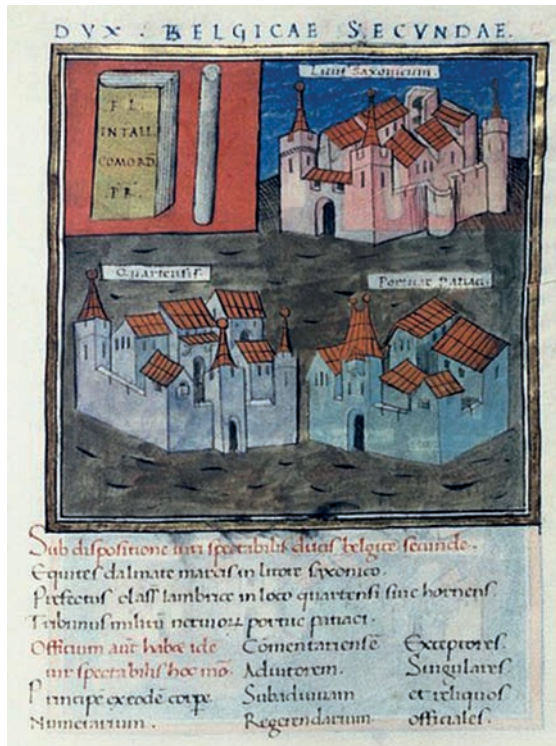 DVX . BELGICAE SECVNDAE.
F L.
INTALL
COMORD.
.P R.
Litus Saxonicum.
Quartensis.
Portuae patiaci.
Sub dispositione uiri spectabilis ducis belgice secunde.
Equites dalmate marcis in litore saxonico.
Prefectus class sambrice in loco quartensi siue hornens.
Tribunus militũ portue patiaci.
Officium aut habet ide
uir spectabilis hoc mõ.
Principe ex eodẽ corpe.
Numerarium.
Comentariensẽ
Adiutorem.
Subadiuuam
Regerendarium.
Exceptores.
Singulares
et reliquos
officiales.